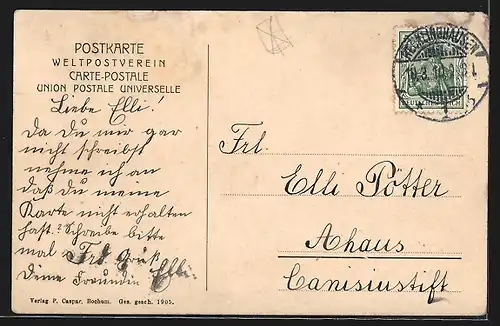 POSTKARTE
WELTPOSTVEREIN
CARTE-POSTALE
UNION POSTALE UNIVERSELLE
Liebe Elli!
Da Du mir gar
nicht schreibst
nehme ich an
daß Du meine
Karte nicht erhalten
hast? Schreibe bitte
mal Frd. Gruß
Deine Freundin Elli.
Verlag P. Caspar, Bochum. Ges. gesch. 1905.
RECKLINGHAUSEN
DEUTSCHES REICH
Frl.
Elli Pötter
Ahaus
Canisiustift